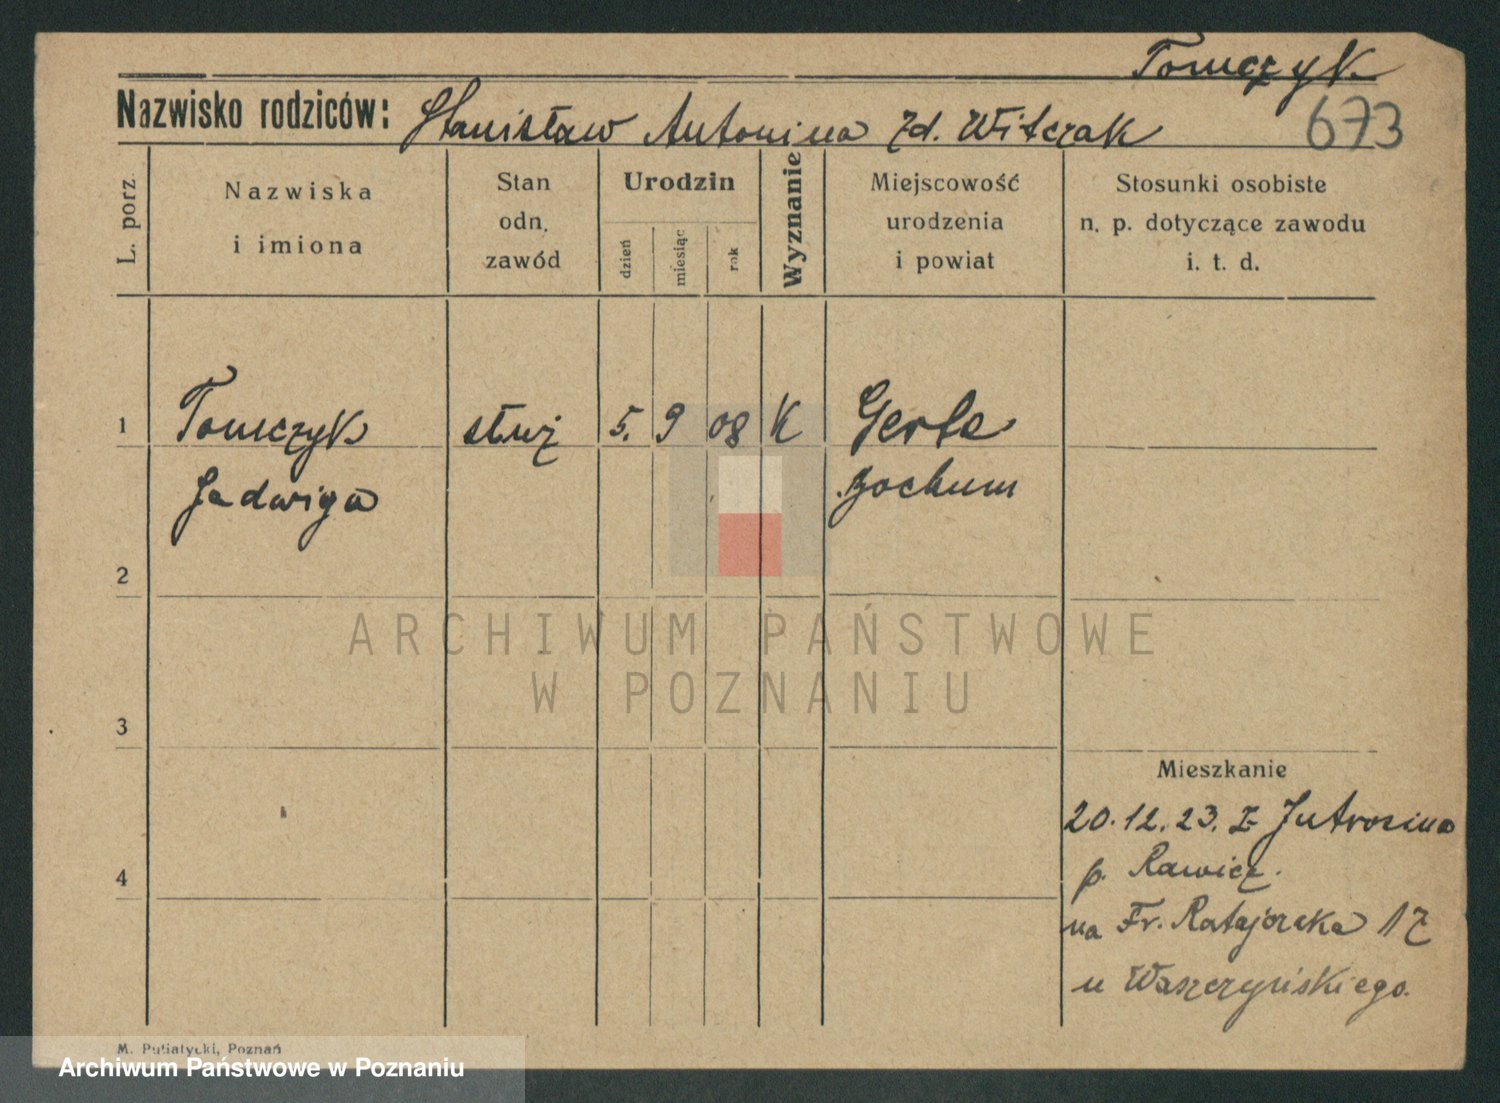 Tomczyk
Nazwisko rodziców: Stanisław Antonina zd. Witczak 673
L. porz.
Nazwiska
i imiona
Stan
odn.
zawód
Urodzin
dzień
miesiąc
rok
Wyznanie
Miejscowość
urodzenia
i powiat
Stosunki osobiste
n. p. dotyczące zawodu
i. t. d.
1 Tomczyk służ 5. 9 08 K Gerte
Jadwiga Bochum
2
ARCHIWUM PAŃSTWOWE
W POZNANIU
3
Mieszkanie
20.12.23. z Jutrosina
4
p. Rawicz.
na Fr. Ratajczaka 17
u Waszczyńskiego.
M. Putiatycki, Poznań
Archiwum Państwowe w Poznaniu